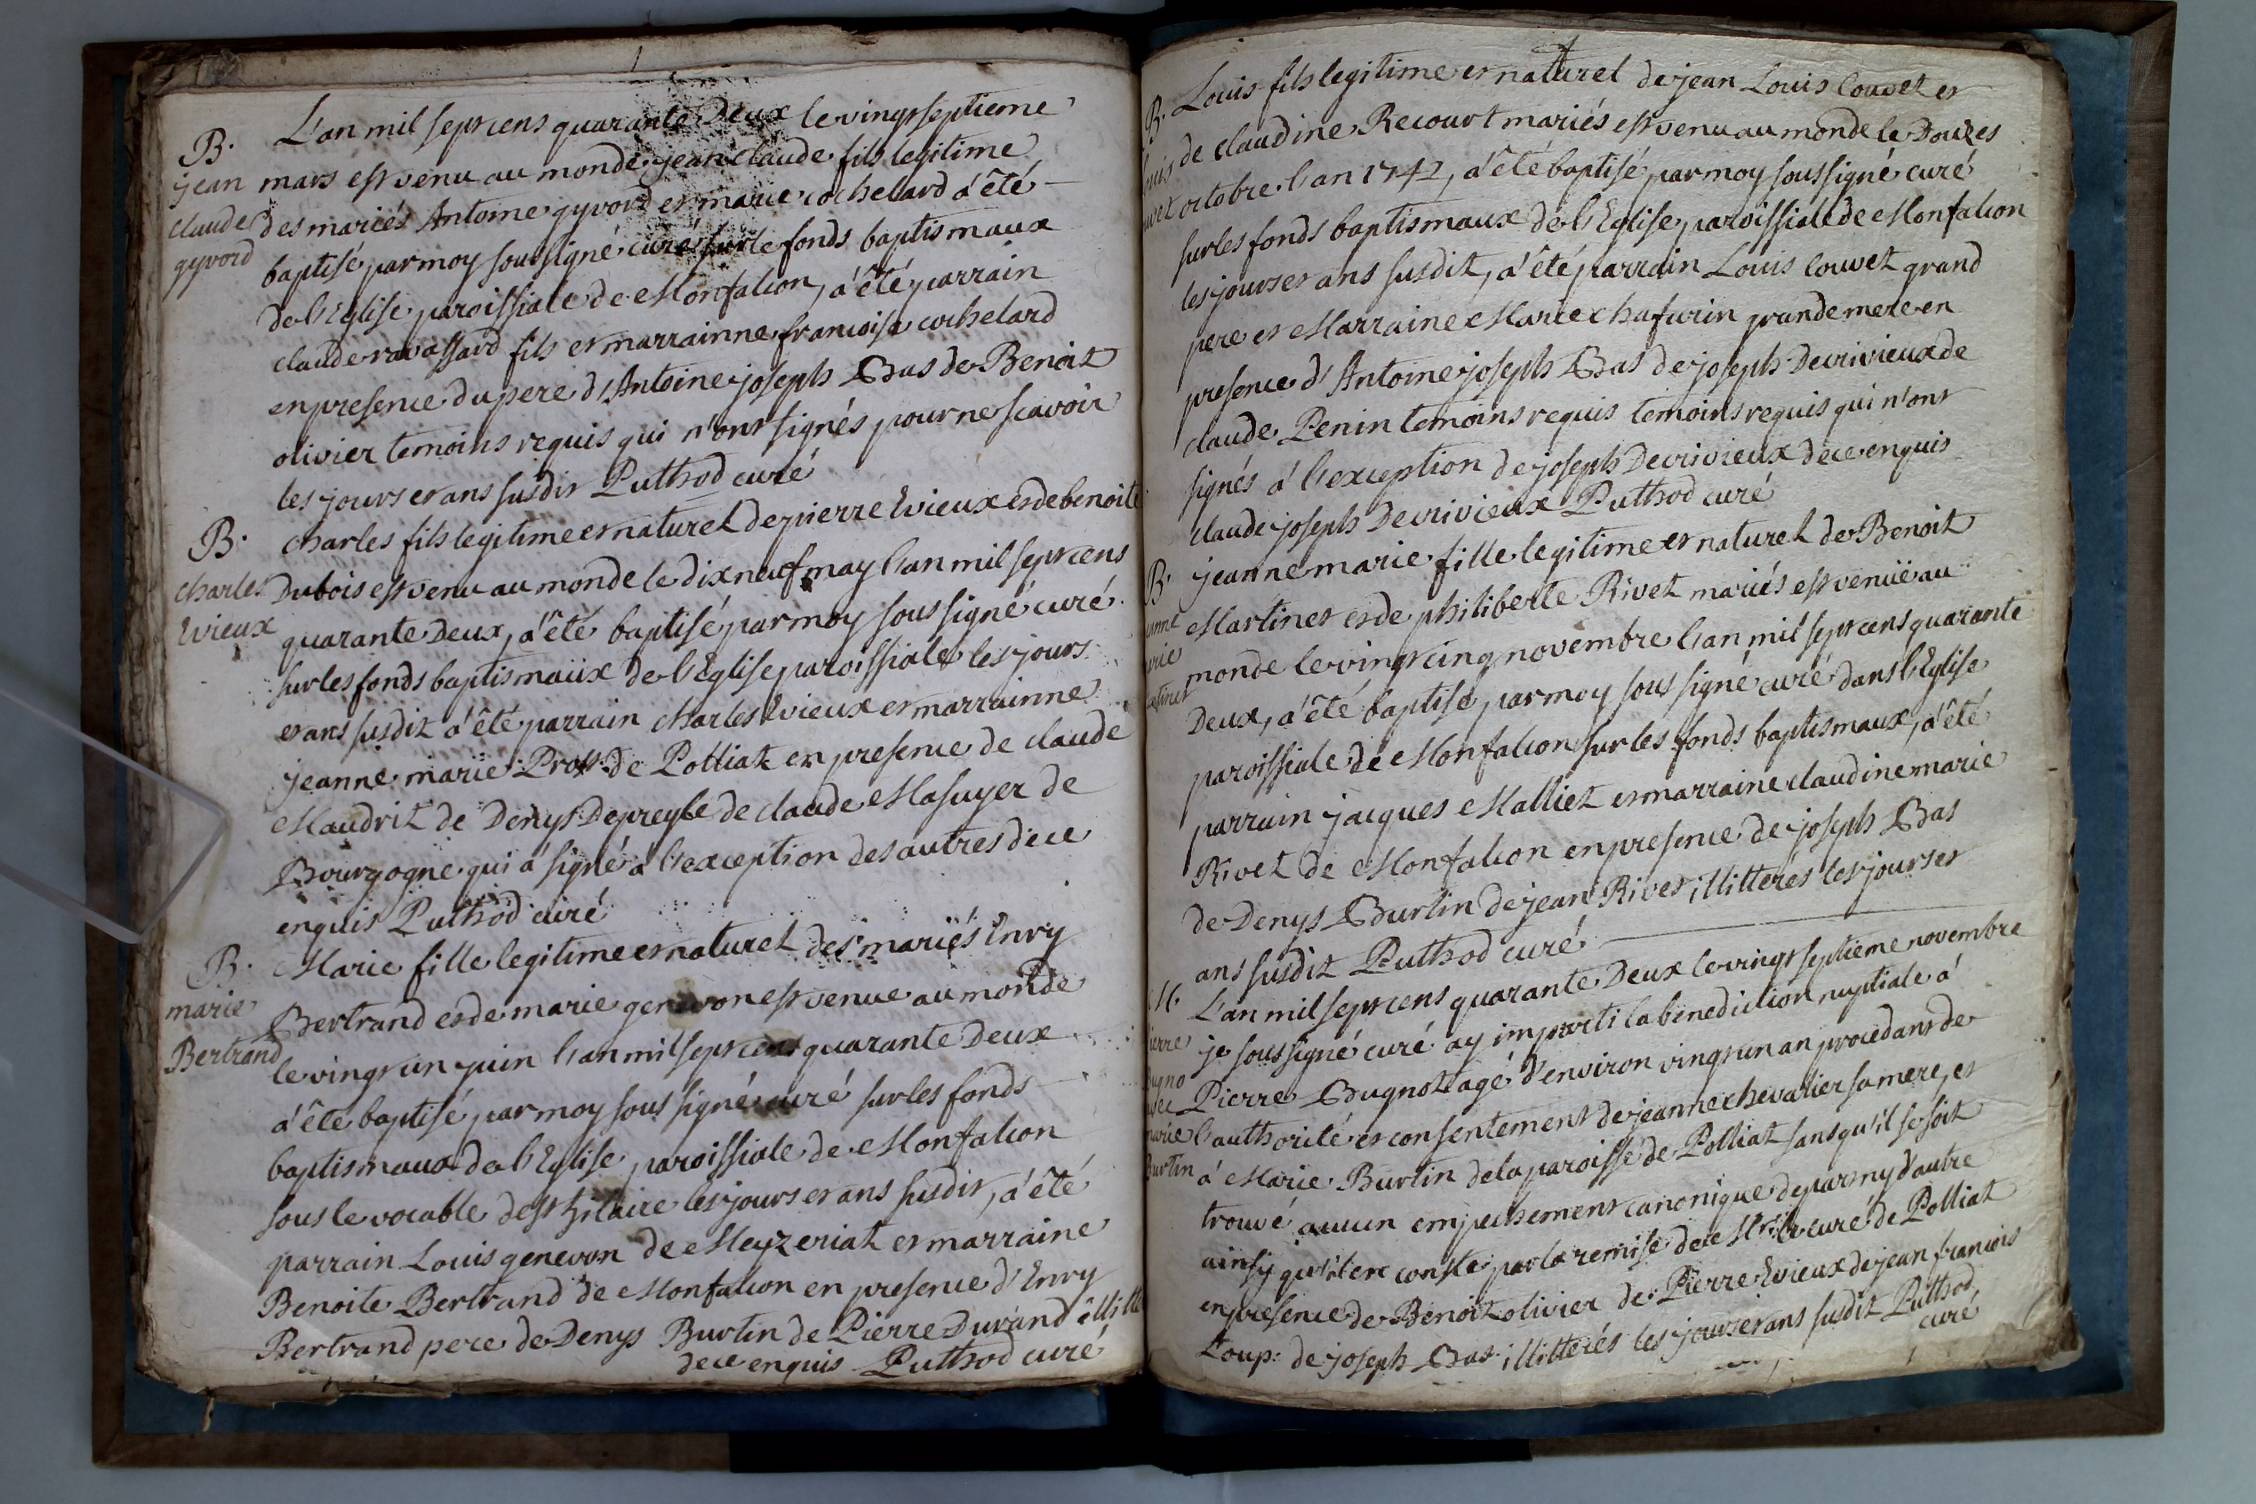 B.
jean
claude
gyvord
L'an mil sept cens quarante Deux le vingt septieme
mars est venu au monde jean claude fils legitime
des mariés Antoine gyvord et marie cochelard a été
baptisé par moy sousigné curé sur le fonds baptismaux
de l'Eglise paroissiale de Monfalcon, a été parrain
claude ravassard fils et marrainne francoise cochelard
en presence du pere d'Antoine joseph Bas de Benoit
olivier temoins requis qui n'ont signés pour ne scavoir
les jours et ans susdit Puthod curé
B.
charles
Evieux
charles fils legitime et naturel de pierre Evieux et de benoite
Dubois est venu au monde le dix neuf may l'an mil sept cens
quarante Deux, a été baptisé par moy soussigné curé
sur les fonds baptismaux de l'Eglise paroissiale les jours
et ans susdit a été parrain charles Evieux et marrainne
jeanne marie Prost de Polliat en presence de claude
Maudrit de Denys Depreyle de claude Masuyer de
Bourgogne qui a signé a l'exception des autres de ce
enquis Puthod curé
B.
marie
Bertrand
Marie fille legitime et naturel des mariés Enry
Bertrand et de marie genevon est venue au monde
le vingt un juin l'an mil sept cens quarante Deux
a été baptisé par moy sous signé curé sur les fonds
baptismaux de l'Eglise paroissiale de Monfalcon
sous le vocable de st hilaire les jours et ans susdit, a été
parrain Louis genevon de Meyzeriat et marraine
Benoite Bertrand de Monfalcon en presence d'Enry
Bertrand pere de Denys Burtin de Pierre Durand
de ce enquis Puthod curé
B. Louis fils legitime et naturel de jean Louis Couvet et
de claudine Recourt mariés est venu au monde le Douzes
octobre l'an 1742, a été baptisé par moy soussigné curé
sur les fonds baptismaux de l'Eglise paroissiale de Monfalcon
les jours et ans susdit, a été parrain Louis Couvet grand
pere et Marraine Marie chafurin grande mere en
presence d'Antoine joseph Bas de joseph Decrivieux de
claude Penin temoins requis temoins requis qui n'ont
signés a l'exception de joseph Decrivieux de ce enquis
claude joseph Decrivieux Puthod curé
B. jeanne marie fille legitime et naturel de Benoit
Martinet et de philiberte Rivet mariés est venüe au
monde le vingt cinq novembre l'an mil sept cens quarante
Deux, a été baptisé par moy sous signé curé dans l'Eglise
paroissiale de Monfalcon sur les fonds baptismaux, a été
parrain jacques Malliet et marraine claudine marie
Rivet de Monfalcon en presence de joseph Bas
de Denys Burtin de jean Rivet illitterés les jours et
ans susdit Puthod curé
L'an mil sept cens quarante Deux le vingt septieme novembre
je soussigné curé ay imparti la benediction nuptiale à
Pierre Bugnot agé d'environ vingt un an procedant de
l'authorité et consentement de jeanne chevalier sa mere, et
Burtin à Marie Burtin de la paroisse de Polliat sans qu'il se soit
trouvé aucun empechement canonique de part ny d'autre
ainsy qu'il en conste par la remise de curé de Polliat
en presence de Benoit olivier de Pierre Evieux de jean francois
Loup: de joseph Bas illitterés les jours et ans susdit Puthod
curé